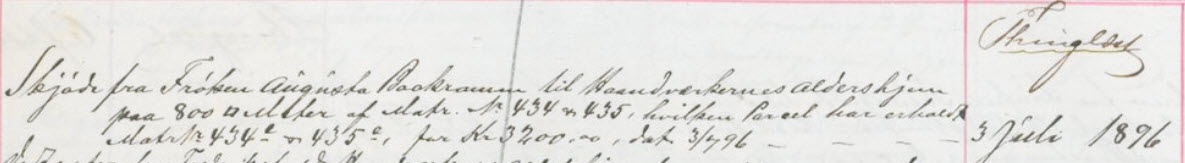 Thinglæst
Skjøde fra Frøken Augusta Backramm til Haandværkernes Aldershjem
paa 800 □ Meter af Matr. Nr 434 & 435, hvilken Parcel har erholdt
Matr Nr 434a & 435a, for Kr 3200.00, dat. 3/7 96 - - - - 3 Juli 1896